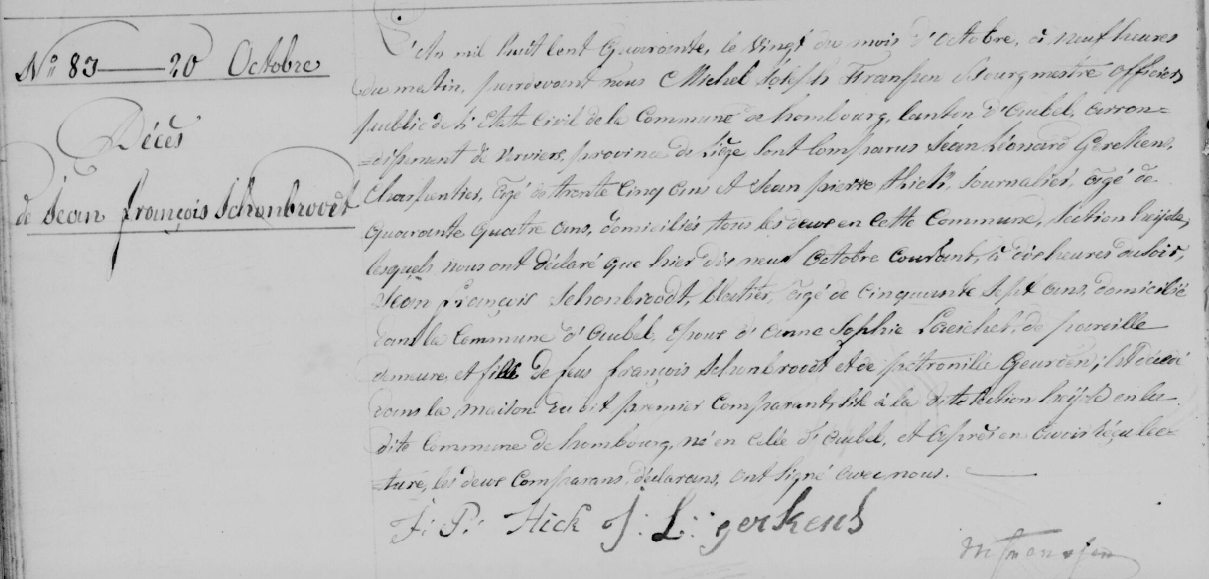 N° 83 — 20 Octobre
Décès
de Jean françois Schonbrodt
L'An mil huit Cent Quarante, le vingt du mois d'Octobre, à neuf heures
du matin, pardevant nous Michel Joseph Franssen Bourgmestre Officier
public de l'Etat Civil de la Commune de hombourg, Canton d'Aubel, arron=
=dissement de verviers, province de Liège Sont Comparus Jean Léonard Gerckens,
Charpentier, âgé de trente Cinq ans et Jean pierre hick, Journalier, âgé de
quarante quatre ans, domiciliés tous les deux en cette Commune, Section
lesquels nous ont déclaré que hier dix neuf Octobre Courant, à dix heures du soir,
Jean françois Schonbroodt, âgé de Cinquante Sept ans, domicilié
dans la Commune d'Aubel, époux d'Anne Sophie de pareille
demeure et fils de feus françois Schonbroodt et de pétronille Geurden; est décédé
dans la maison du dit premier Comparant, sise à la dite Section en la
dite Commune de hombourg, né en celle d'Aubel, et après en avoir reçu lec=
=ture, les deux Comparans, déclarans, ont signé avec nous.
J: P: Hick J: L: gerkens
M J franssen